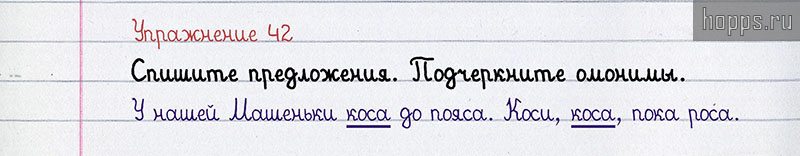 hopps.ru
Упражнение 42
Спишите предложения. Подчеркните омонимы.
У нашей Машеньки коса до пояса. Коси, коса, пока роса.